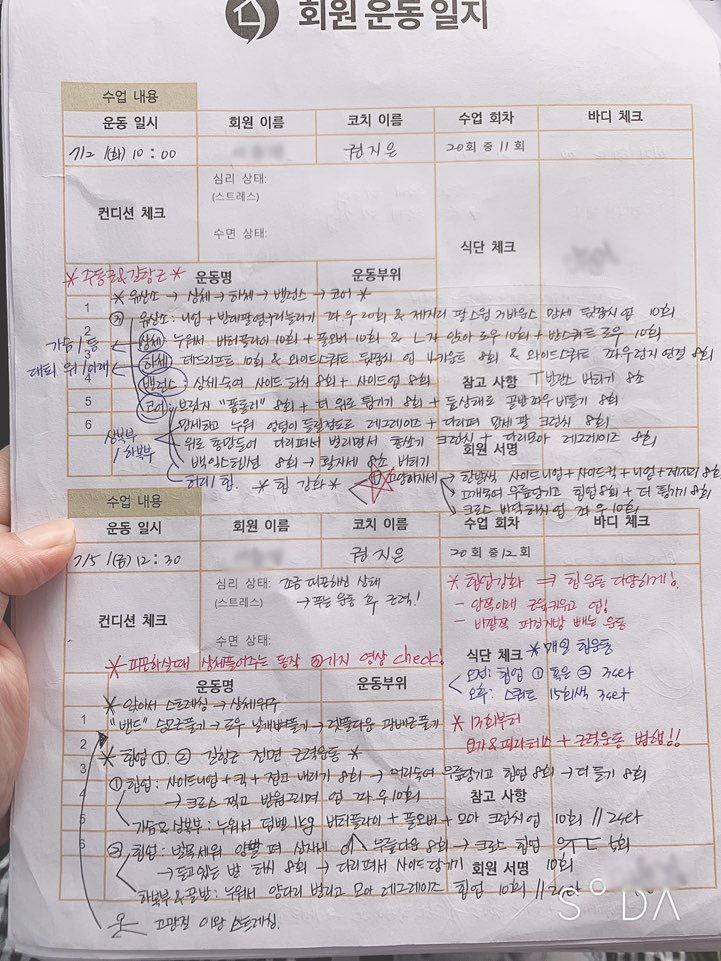 회원 운동 일지
수업 내용
운동 일시 회원 이름 코치 이름 수업 회차 바디 체크
7/2 (화) 10:00 권지은 20회 중 11회
컨디션 체크
심리 상태:
(스트레스)
수면 상태:
식단 체크
운동명 운동부위
* 유산소 → 상체 → 하체 → 밸런스 → 코어 *
1
2 유산소: 니업 + 20회 & 제자리 팔스윙 만세 뒤꿈치 업 10회
가슴/등 상체 누워서 버터플라이 10회 + 풀오버 10회 & L자 앉아 로우 10회 + 반스쿼트 로우 10회
3
대퇴 위/아래 하체 데드리프트 10회 & 와이드스쿼트 뒤꿈치 업 4카운트 8회 & 와이드스쿼트 좌우런지 연결 8회
4 밸런스: 상체숙여 사이드 터치 8회 + 사이드업 8회 참고 사항 T밸런스 버티기 8초
5 코어: 브릿지 "폼롤러" 8회 + 더 위로 튕기기 8회 + 든상태로 골반좌우 버틀기 8회
6 만세하고 누워 엉덩이 들릴정도로 레그레이즈 + 다리펴 만세 팔 크런치 8회
상복부
/ 하복부
위로 다리펴서 벌리면서 크런치 + 다리모아 레그레이즈 8회
회원 서명
백익스텐션 8회 → 활자세 8초 버티기
허리/힙 * 힙 강화 * ① 한발씩 사이드니업 + 사이드킥 + 니업 + 제자리 8회
무릎당기고 힙업 8회 + 더 튕기기 8회
크로스 바닥터치 업 좌우 10회
수업 내용
운동 일시 회원 이름 코치 이름 수업 회차 바디 체크
7/5 (금) 12:30 권지은 20회 중 12회
컨디션 체크
심리 상태: 조금 피곤하신 상태
(스트레스) → 푸는 운동 후 근력!
수면 상태:
* 힙업강화 ⇒ 힙 운동 다양하게!
- 안쪽아래 근육키우고 업!
- 바깥쪽 빼는 운동
식단 체크 * 매일 힙운동
오전: 힙업 ① 혹은 ② 3세트
오후: 스쿼트 15회씩 3세트
* 피곤하실때 상체풀어주는 동작 영상 check!
운동명 운동부위
* 앉아서 스트레칭 → 상체위주
1 "밴드" 승모근풀기 → 로우 날개뼈풀기 → 랫풀다운 광배근풀기
* 13회부터
요가&필라테스 + 근력운동 병행!!
2 * 힙업 ① ② 전면 근력운동 *
3 ① 힙업: 사이드니업 + 킥 + 접고 내리기 8회 → 머리숙여 무릎당기고 힙업 8회 → 더 들기 8회
4 → 크로스 찍고 반원그리며 업 좌우 10회 참고 사항
5 가슴&상복부: 누워서 덤벨 1kg 버터플라이 + 풀오버 + 모아 크런치 업 10회 // 2세트
6 ② 힙업: 발목세워 양발 펴 삼자세 무릎다운 8회 → 크로스 힙업 5회
→ 들고있는 발 터치 8회 → 다리펴서 사이드 당기기 10회
회원 서명
하복부 & 골반: 누워서 양다리 벌리고 모아 레그레이즈 힙업 10회 // 2세트
고관절 이완 스트레칭.
SODA